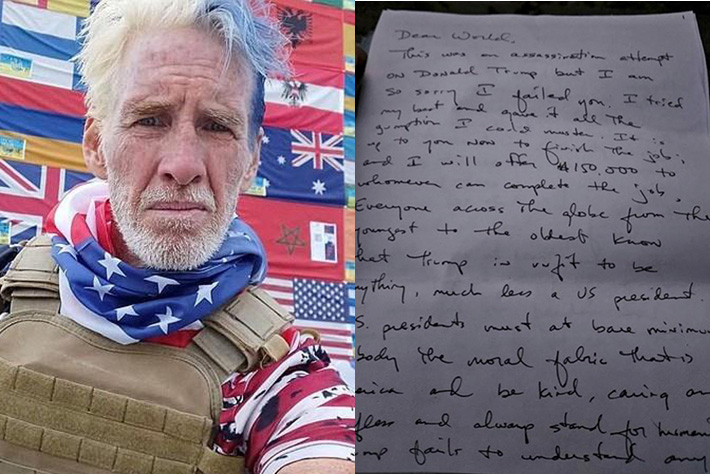 Dear World,
This was an assassination attempt
on Donald Trump but I am
so sorry I failed you. I tried
my best and gave it all the
gumption I could muster. It is
up to you now to finish the job;
and I will offer $150,000 to
whomever can complete the job.
Everyone across the globe from the
youngest to the oldest know
hat Trump is unfit to be
ything, much less a US president.
S. presidents must at bare minimum
body the moral fabric that is
rica and be kind, caring an
fless and always stand for humani
mp fails to understand any